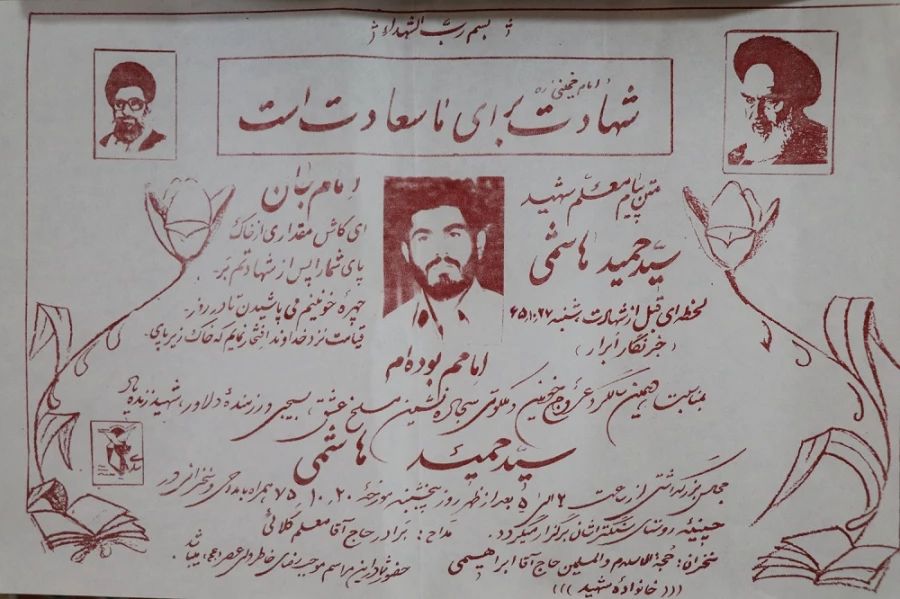 بسم رب الشهداء
امام خمینی ره
شهادت برای ما سعادت است
متن پیام معلم شهید
سید حمید هاشمی
لحظه‌ای قبل از شهادت شنبه ۶۵،۱۰،۲۷
(خبرنگار ابرار)
امام زمان
ای کاش مقداری از خاک
پای شما را پس از شهادتم بر
چهره خونینم می پاشیدن تا در روز
قیامت نزد خداوند افتخار نمایم که خاک زیر پای
امامم بوده‌ام
بمناسبت دهمین سالگرد عروج خونین و ملکوتی سجاده نشین مسلخ عشق، بسیجی و رزمنده دلاور، شهید زنده یاد
سید حمید هاشمی
مجلس بزرگداشتی از ساعت ۲ الی ۵ بعد از ظهر روز پنجشنبه مورخهٔ ۷۵،۱۰،۲۰ همراه با مداحی و سخنرانی در
حسینیه روستای برگزار میگردد. مداح: برادر حاج آقا معلم کلائی
سخنران: حجة الاسلام والمسلمین حاج آقا ابراهیمی
حضور شما در این مراسم موجب رضای خاطر ولی عصر (عج) میباشد.
(((خانوادهٔ شهید)))